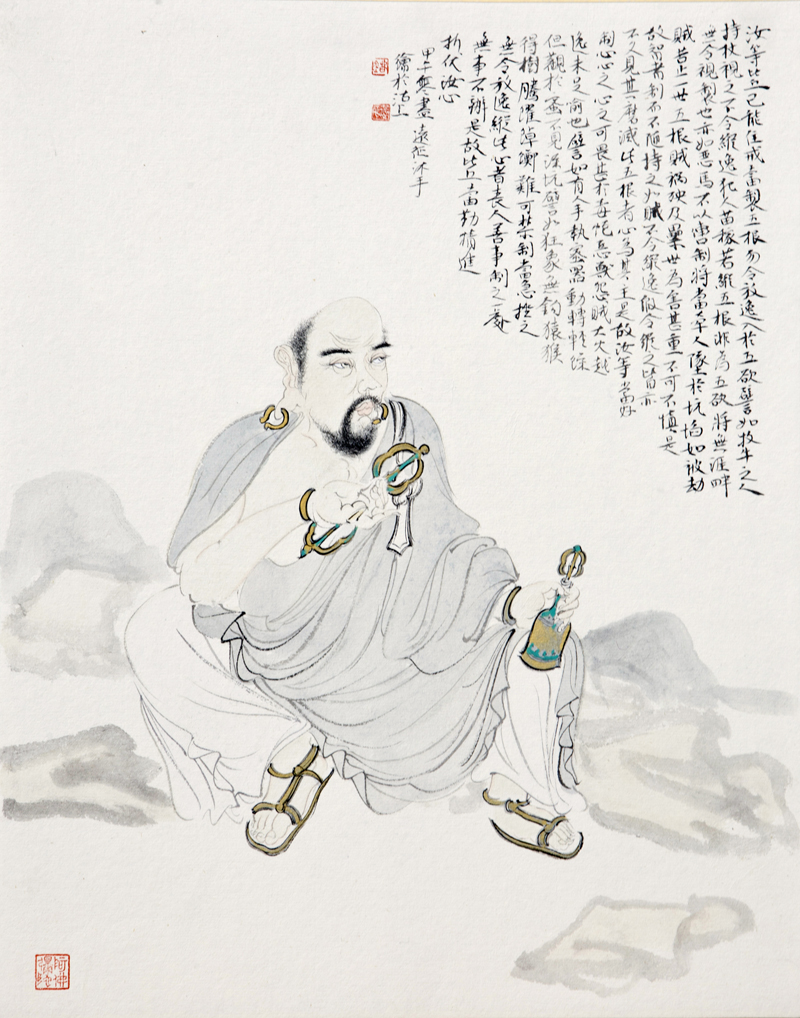 汝等比丘已能住戒當製五根勿令放逸入於五欲譬如牧牛之人
持杖視之不令縱逸犯人苗稼若縱五根非為五欲將無涯畔
無令視製也亦如惡馬不以轡制將當牽人墜於坑陷如被劫
賊苦止一世五根賊禍殃及累世為害甚重不可不慎是
故智者制而不隨持之如賊不令縱逸假令縱之皆亦
不久見其磨滅此五根者心為其主是故汝等當好
制心心之可畏甚於毒蛇惡獸怨賊大火越
逸未足喻也譬如有人手執蜜器動轉輕躁
但觀於蜜不見深坑譬如狂象無鈎猿猴
得樹騰躍踔躑難可禁制當急挫之
無令放逸縱此心者喪人善事制之一處
無事不辦是故比丘當勤精進
折伏汝心
甲午寒盡 遠征沐手
繪於沽上